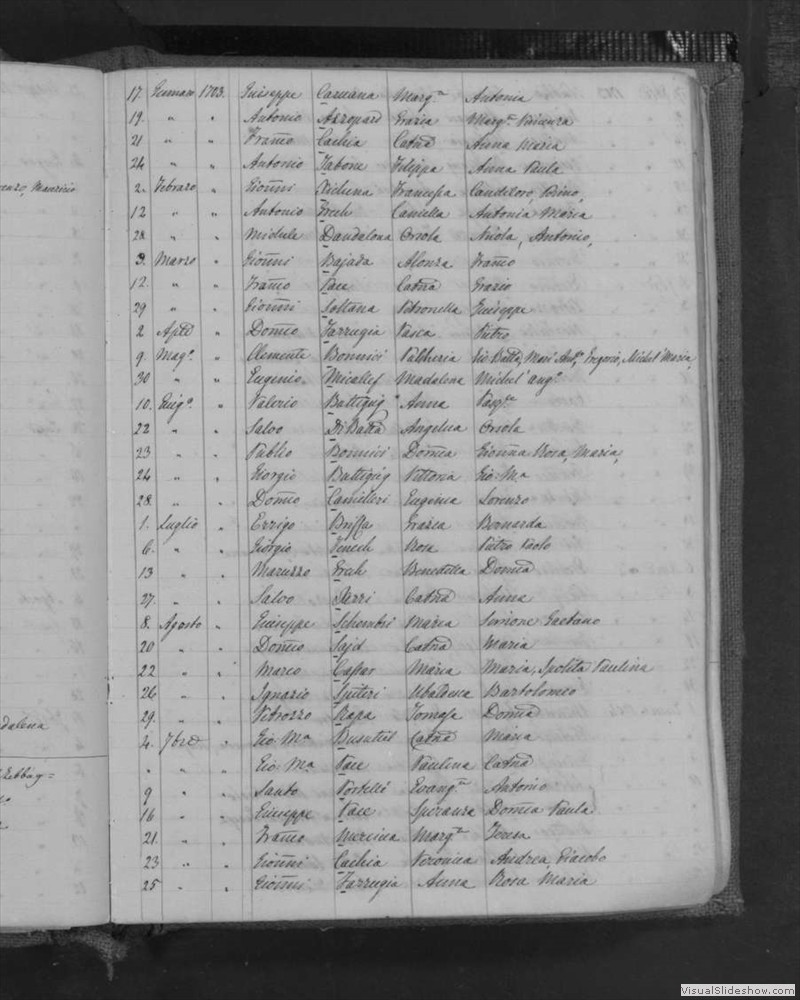 renzo, Maurizio
dalena
Zebbug =
17. Gennaro 1703. Giuseppe Caruana Marg.ta Antonia
19. " " Antonio Azzopard Grazia Marg.ta Vincenza
21 " " Franco Cachia Catnã Anna Maria
24 " " Antonio Tabone Filippa Anna Paula
2. Febraro " Gioñni Xicluna Francesca Candiloro, Primo,
12 " " Antonio Grech Camilla Antonia Maria
28 " " Michele Dandalona Orsola Nicola, Antonio,
3. Marzo " Gioñni Bajada Alonza Franco
12. " " Franco Pace Catnã Grazio
29 " " Gioñni Soltana Petronella Giuseppe
2 Aple " Domco Farrugia Pasca Pietro
9. Magg.o " Clemente Bonnici Valheria Gio Batta, Mari Ant.a, Gregorio, Michel' Maria,
30 " " Eugenio. Micallef Madalena Michel' Ang.o
10. Giug.o " Valerio Battigieg Anna
22 " " Salvo Di Batta Angelica Orsola
23 " " Publio Bonnici Domca Gioñna Rosa, Maria,
24 " " Giorgio Buttigieg Vittoria Gio. Ma
28. " " Domco Camilleri Eugenia Lorenzo
1. Luglio " Errigo Briffa Grazia Bernarda
6. " " Giorgio Zenech Rosa Pietro Paolo
13 " " Maruzzo Grech Benedetta Domca
27. " " Salvo Catnã Anna
8. Agosto " Giuseppe Schembri Maria Simone Gaetano
20 " " Domco Sajd Catnã Maria
22 " " Marco Castar Maria Maria, Ipolita Paulina
26 " " Ignazio Spiteri Ubaldesca Bartolomeo
29. " " Vitrozzo Rapa Tomasa Domca
4. 7bre " Gio Ma Busuttil Catnã Maria
" " " Gio Ma Pace Paulina Catnã
9 " " Santo Portelli Evang.ta Antonio
16 " " Giuseppe Pace Speranza Domca Paula
21. " " Franco Mercieca Marg.ta Teresa
23 " " Gioñni Cachia Veronica Andrea, Giacobo
25 " " Gioñni Farrugia Anna Rosa Maria
VisualSlideshow.com